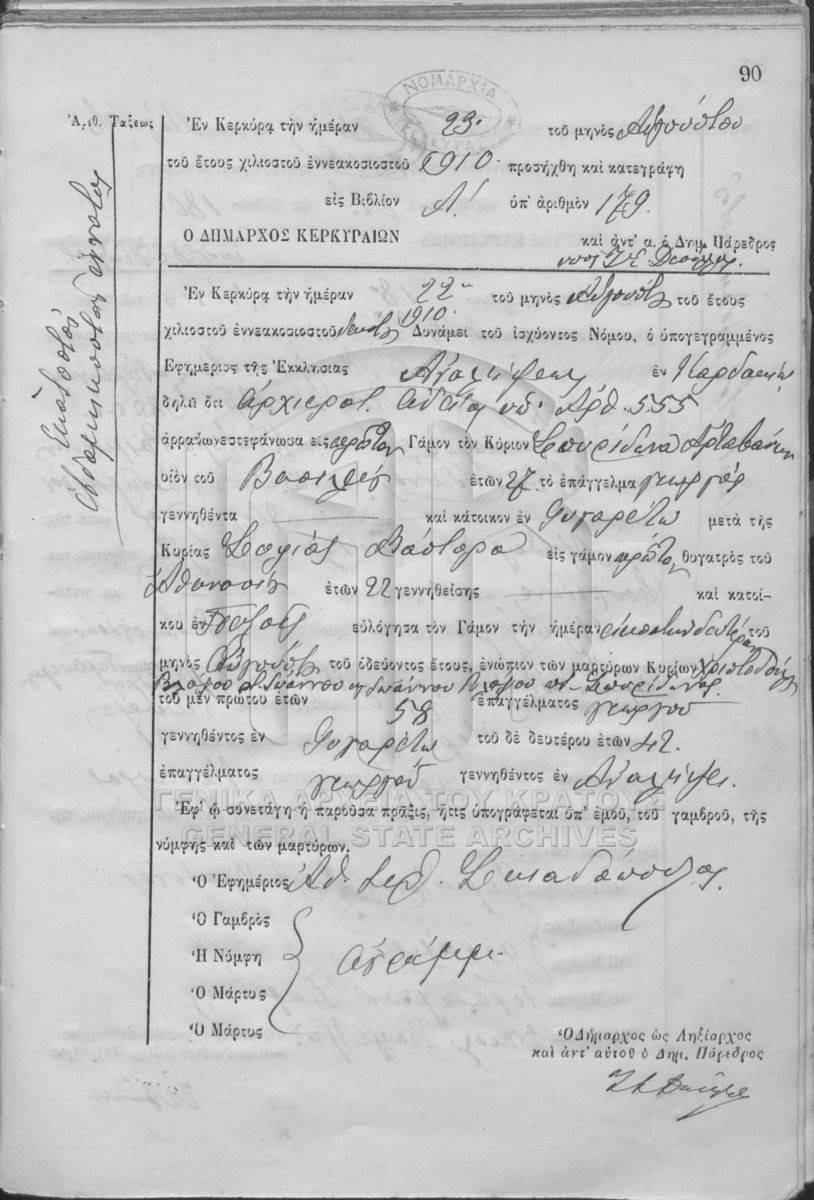 90
ΝΟΜΑΡΧΙΑ
ΚΕΡΚΥΡΑΣ
Ἀριθ. Τάξεως
Ἑκατοστὸς
ἑβδομηκοστὸς ἔννατος
Ἐν Κερκύρᾳ τὴν ἡμέραν 23. τοῦ μηνὸς Αὐγούστου
τοῦ ἔτους χιλιοστοῦ ἐννεακοσιοστοῦ 1910 προσήχθη καὶ κατεγράφη
εἰς Βιβλίον Α! ὑπ' ἀριθμὸν 179.
Ο ΔΗΜΑΡΧΟΣ ΚΕΡΚΥΡΑΙΩΝ καὶ ἀντ' α. ὁ Δημ. Πάρεδρος
Ἐν Κερκύρᾳ τὴν ἡμέραν 22 τοῦ μηνὸς Αὐγούστ τοῦ ἔτους
1910
χιλιοστοῦ ἐννεακοσιοστοῦ δεκάτ Δυνάμει τοῦ ἰσχύοντος Νόμου, ὁ ὑπογεγραμμένος
Ἐφημέριος τῆς Ἐκκλησίας Ἀναλήψεως ἐν
δηλῶ ὅτι ἀρχιερατ. ἀδείας ὑπ' Ἀρθ. 555
ἀρραβωνεστεφάνωσα εἰς πρῶτον Γάμον τὸν Κύριον Σπυρίδωνα
υἱὸν τοῦ Βασιλείου ἐτῶν 27 τὸ ἐπάγγελμα γεωργός
γεννηθέντα καὶ κάτοικον ἐν μετὰ τῆς
Κυρίας Σοφίας Βάστορα εἰς γάμον πρῶτον θυγατρὸς τοῦ
Ἀθανασίου ἐτῶν 22 γεννηθείσης καὶ κατοί-
κου ἐν εὐλόγησα τὸν Γάμον τὴν ἡμέραν εἰκοστὴν δευτέραν τοῦ
μηνὸς Αὐγούστ τοῦ ὁδεύοντος ἔτους, ἐνώπιον τῶν μαρτύρων Κυρίων Χριστοδούλ
Ἰωάννου Σπυρίδωνος
τοῦ μὲν πρώτου ἐτῶν 58 ἐπαγγέλματος γεωργοῦ
γεννηθέντος ἐν τοῦ δὲ δευτέρου ἐτῶν 42.
ἐπαγγέλματος γεωργοῦ γεννηθέντος ἐν Ἀναλήψει.
ΓΕΝΙΚΑ ΑΡΧΕΙΑ ΤΟΥ ΚΡΑΤΟΥΣ
Ἐφ' ᾧ συνετάγη ἡ παροῦσα πρᾶξις, ἥτις ὑπογράφεται ὑπ' ἐμοῦ, τοῦ γαμβροῦ, τῆς
GENERAL STATE ARCHIVES
νύμφης καὶ τῶν μαρτύρων.
Ὁ Ἐφημέριος Ἀθ. ἱερ. Σκιαδόπουλος
Ὁ Γαμβρὸς
Ἡ Νύμφη ἀγράμμ.
Ὁ Μάρτυς
Ὁ Μάρτυς
Ὁ Δήμαρχος ὡς Ληξίαρχος
καὶ ἀντ' αὐτοῦ ὁ Δημ. Πάρεδρος